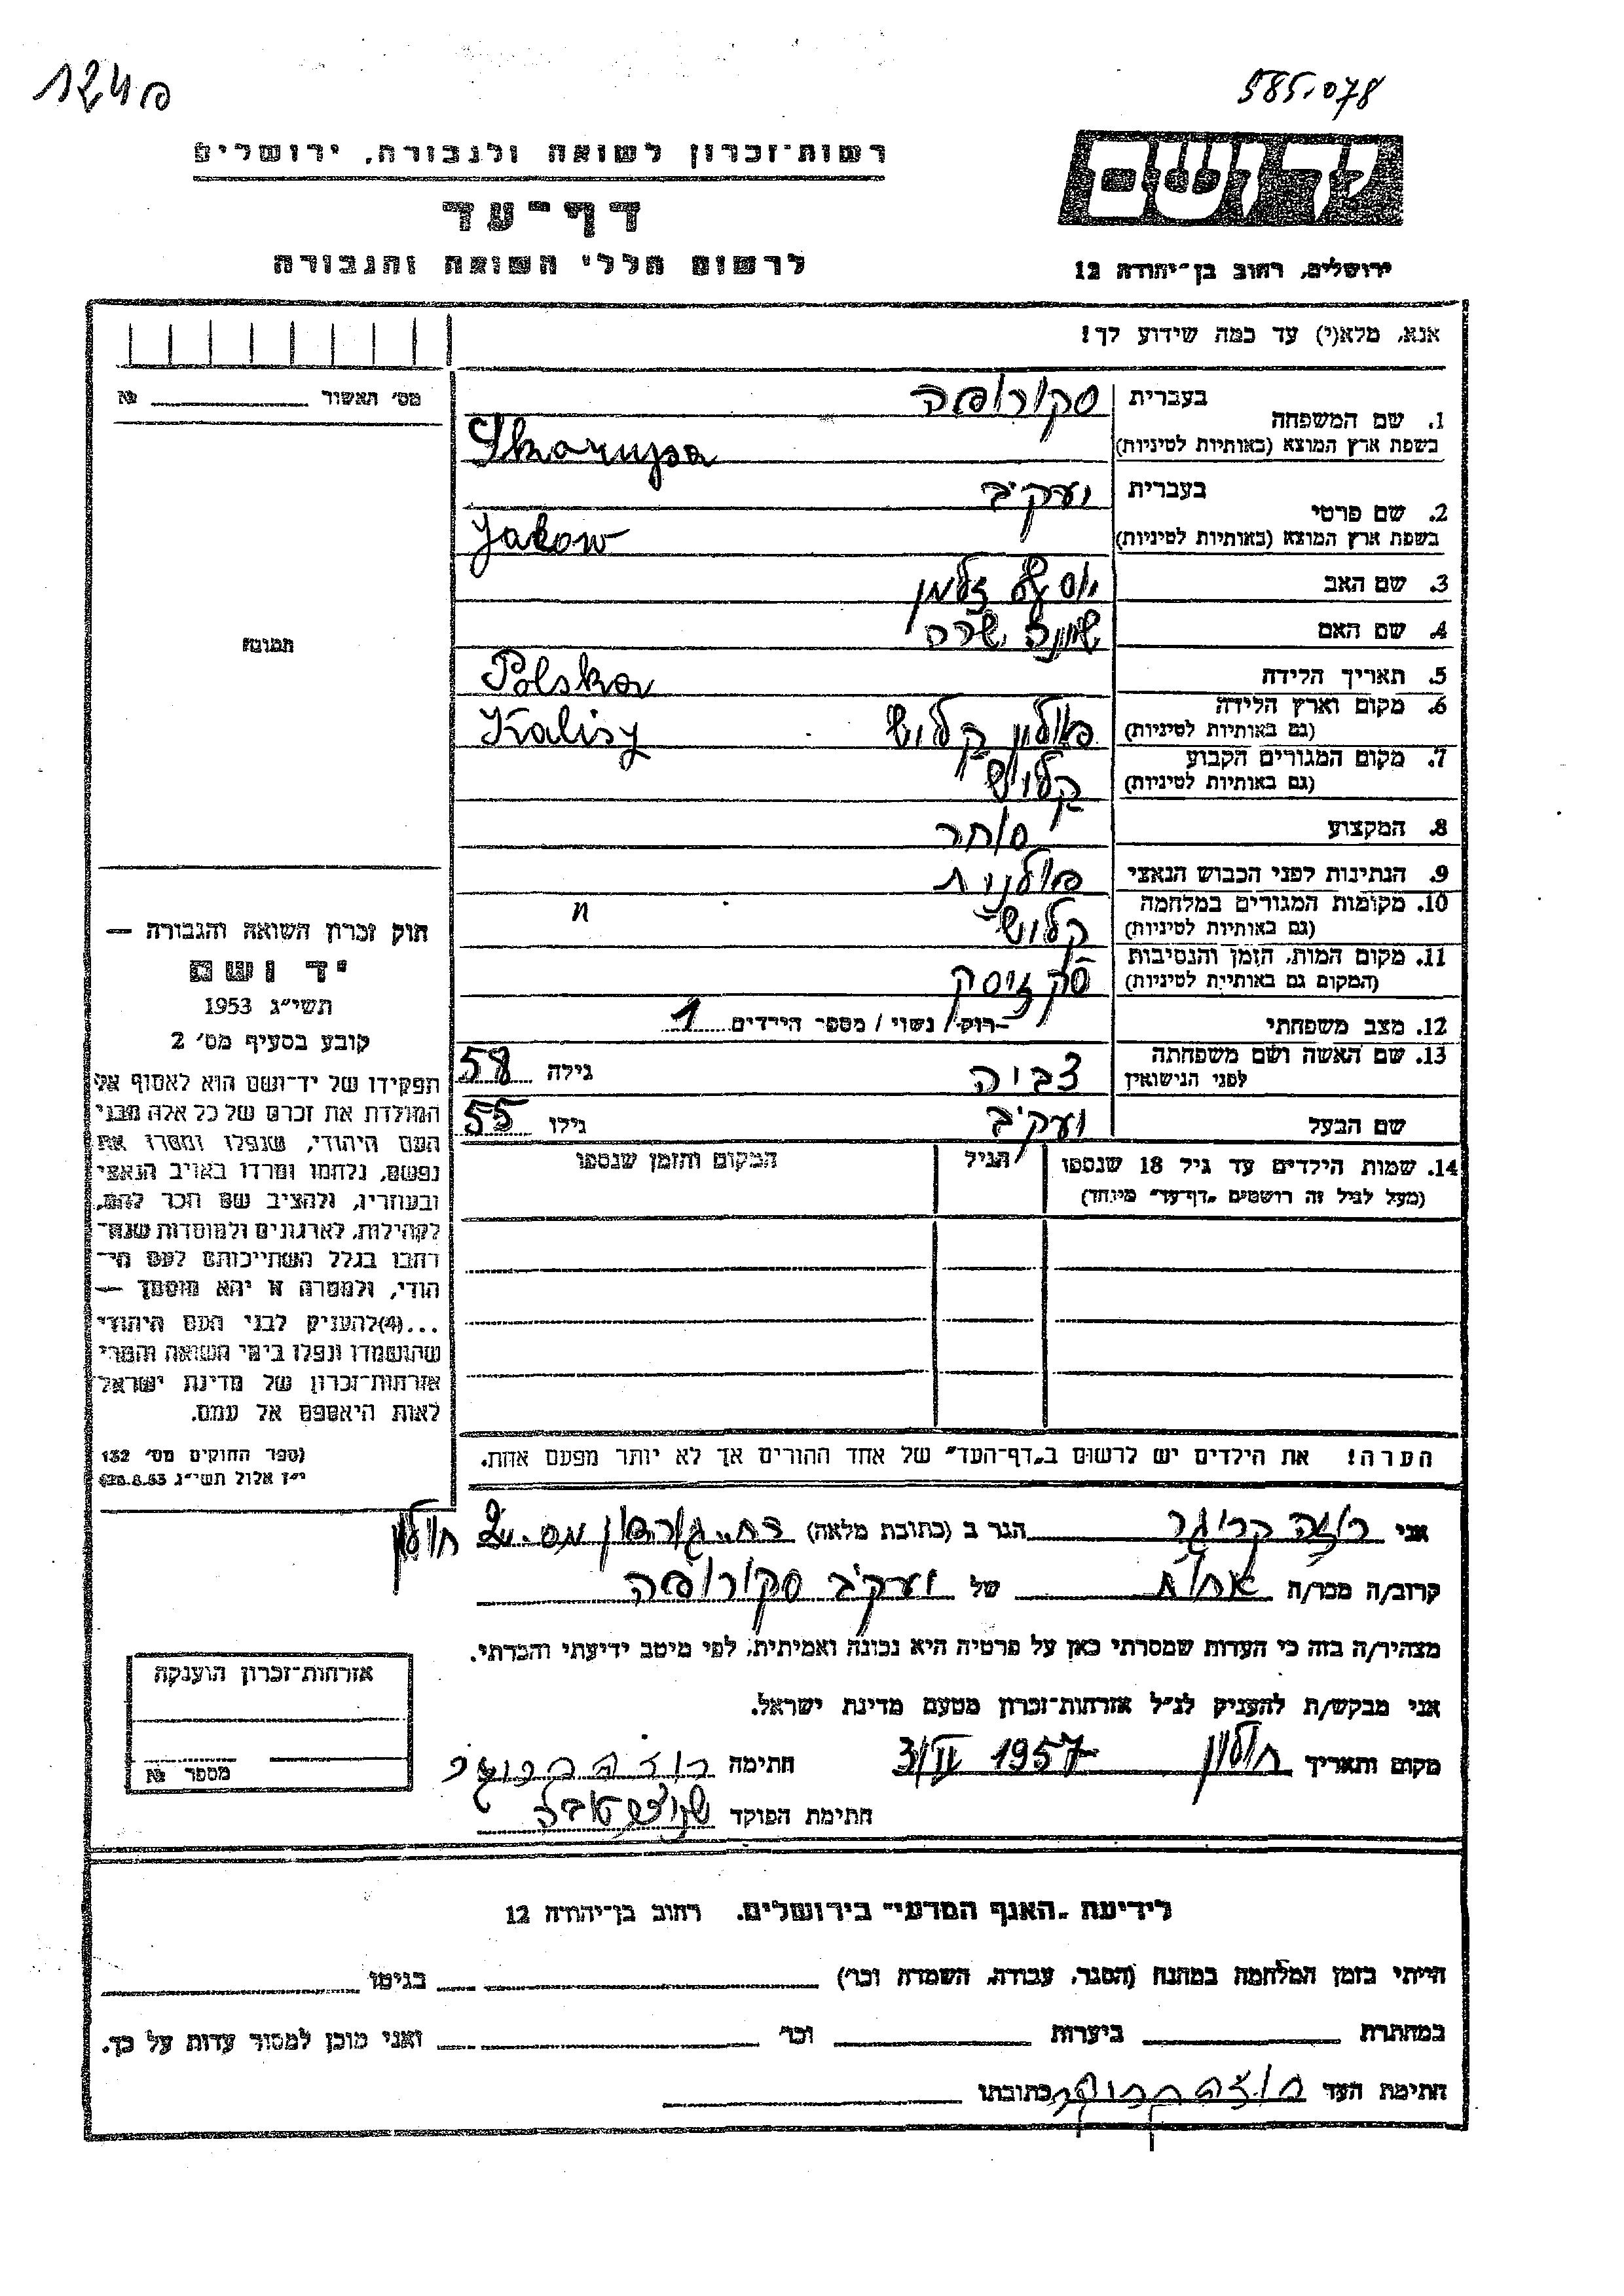 124ס
585.078
רשות־זכרון לשואה ולגבורה, ירושלים
יד ושם
דף־עד
לרשום חללי השואה והגבורה
ירושלים, רחוב בן־יהודה 12
אנא, מלא(י) עד כמה שידוע לך!
מס' האשור № 
1. שם המשפחה
בעברית סקורופה
בשפת ארץ המוצא (באותיות לטיניות) Skorupa
2. שם פרטי
בעברית יעקיב
בשפת ארץ המוצא (באותיות לטיניות) Jakow
3. שם האב יוסף זלמן
4. שם האם שרה
תמונה
5. תאריך הלידה Polska
6. מקום וארץ הלידה
(גם באותיות לטיניות) פולין קליש Kalisz
7. מקום המגורים הקבוע
(גם באותיות לטיניות) קליש
8. המקצוע סוחר
9. הנתינות לפני הכבוש הנאצי פולנית
10. מקומות המגורים במלחמה
(גם באותיות לטיניות) קליש "
11. מקום המות, הזמן והנסיבות
(המקום גם באותיות לטיניות)
12. מצב משפחתי רווק / נשוי / מספר הילדים 1
13. שם האשה ושם משפחתה
לפני הנישואין צביה גילה 58
שם הבעל יעקיב גילו 55
14. שמות הילדים עד גיל 18 שנספו
(מעל לגיל זה רושמים "דף־עד" מיוחד)
הגיל
המקום והזמן שנספו
חוק זכרון השואה והגבורה —
יד ושם
תשי"ג 1953
קובע בסעיף מס' 2
תפקידו של יד־ושם הוא לאסוף אל
המולדת את זכרם של כל אלה מבני
העם היהודי, שנפלו ומסרו את
נפשם, נלחמו ומרדו באויב הנאצי
ובעוזריו, ולהציב שם וזכר להם,
לקהילות, לארגונים ולמוסדות שנח־
רבו בגלל השתייכותם לעם הי־
הודי, ולמטרה זו יהא מוסמך —
...(4) להעניק לבני העם היהודי
שהושמדו ונפלו בימי השואה והמרי
אזרחות־זכרון של מדינת ישראל
לאות היאספם אל עמם.
(ספר החוקים מס' 132
י"ז אלול תשי"ג 28.8.53)
הערה! את הילדים יש לרשום ב"דף־העד" של אחד ההורים אך לא יותר מפעם אחת.
אני רוזה קריגר הגר ב (כתובת מלאה) רח. גורדון מס. 2 חולון
קרוב/ה מכר/ה אחות של יעקיב סקורופה
מצהיר/ה בזה כי העדות שמסרתי כאן על פרטיה היא נכונה ואמיתית, לפי מיטב ידיעתי והכרתי.
אני מבקש/ת להעניק לנ"ל אזרחות־זכרון מטעם מדינת ישראל.
מקום ותאריך חולון 3/IV 1957 חתימה
חתימת הפוקד
אזרחות־זכרון הוענקה
מספר №
לידיעת "האגף המדעי" בירושלים. רחוב בן־יהודה 12
הייתי בזמן המלחמה במחנה (הסגר, עבודה, השמדה וכו') בגיטו
במחתרת ביערות וכו' ואני מוכן למסור עדות על כך.
חתימת העד כתובתו